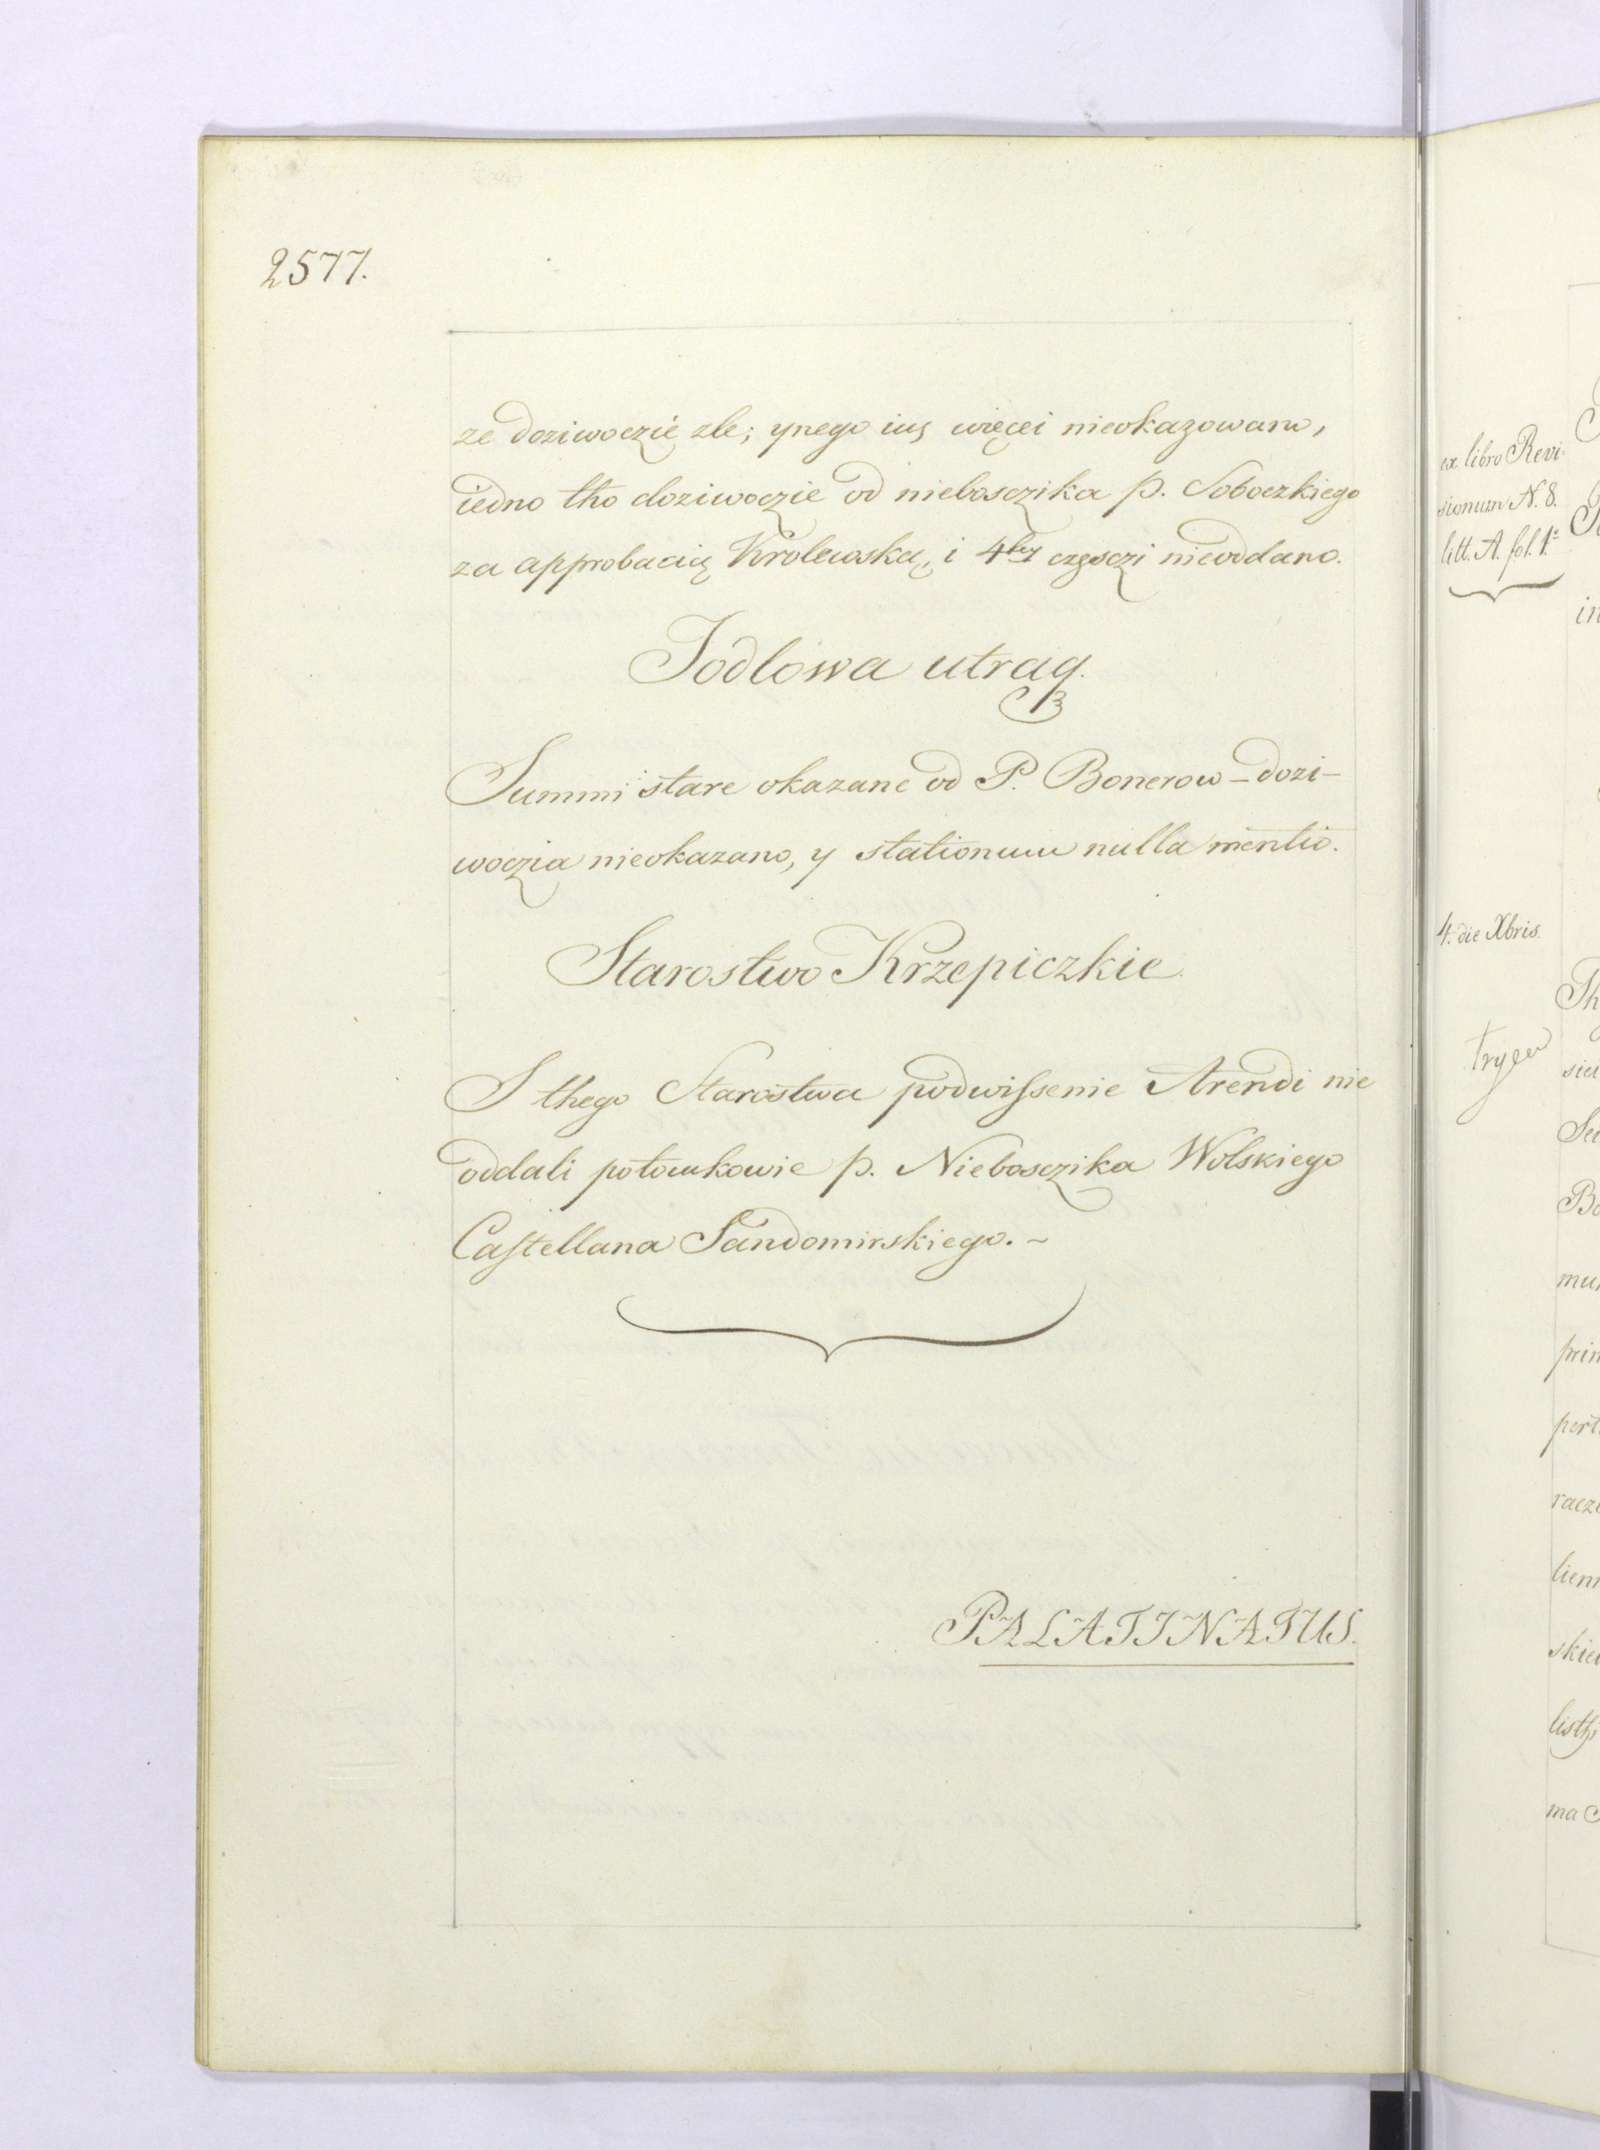 2577.
ze doziwoczię zle; ynego ius więcei nieokazowano,
iedno tho doziwoczie od nieboszczika p. Soboczkiego
za approbacią Krolewską, i 4tey częsczi nieoddano.
Jodlowa utraq.
Summi stare okazane od P. Bonerow – dozi-
woczia nieokazano, y stationum nulla mentio.
Starostwo Krzepiczkie.
S thego Starostwa podwissenie Arendi nie
oddali potomkowie p. Nieboszczika Wolskiego
Castellana Sandomirskiego. ~
PALATINATUS.
ex libro Revi-
sionum N. 8.
litt. A. fol. 1.
4. die Xbris.
in
Th
Se
Bo
mu
prin
pert.
racz
lien
skie
listh
ma